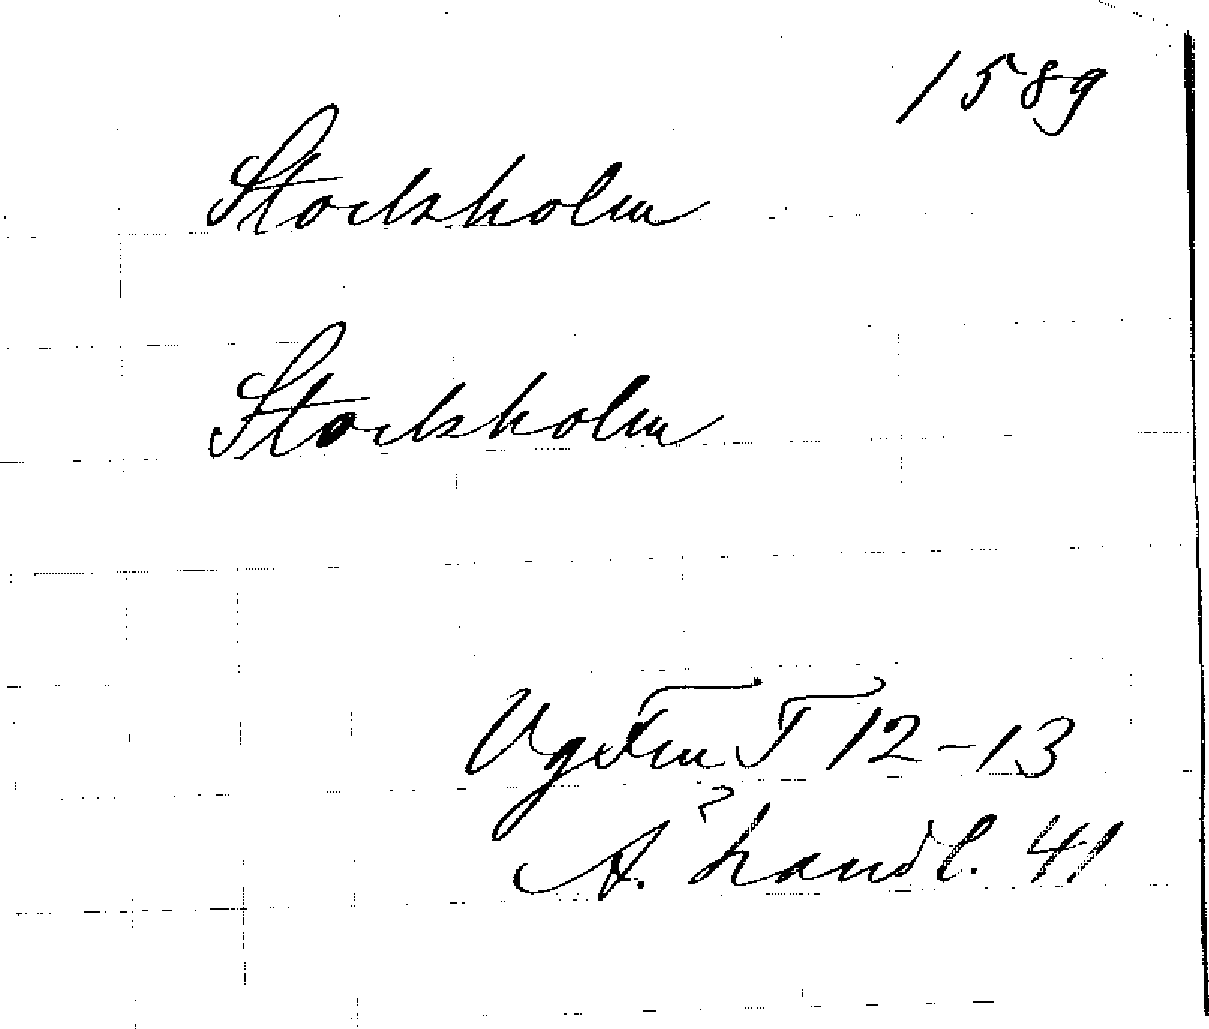 1589
Stockholm
Stockholm
VgFm T 12-13
A. handl. 41